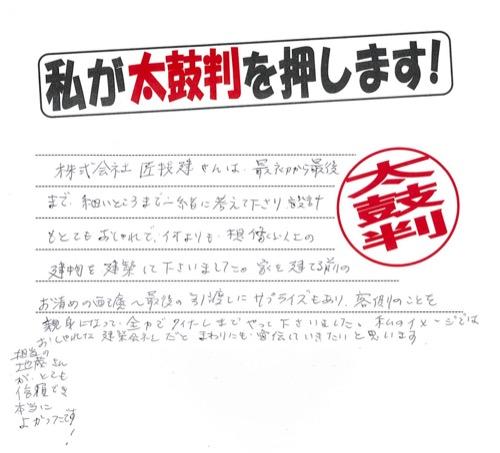 私が太鼓判を押します!
太鼓判
株式会社 匠技建さんは、最初から最後
まで、細いところまで一緒に考えて下さり設計
もとてもおしゃれで、何よりも、想像以上の
建物を建築して下さいました。家を建てる前の
お清めの〜最後の引渡しにサプライズもあり、客側のことを
親身になって、全力でやって下さいました。私のイメージでは
おしゃれな建築会社だと まわりにも宣伝していきたいと思います
担当の
さん
が、とても
信頼でき
本当に
よかったです!